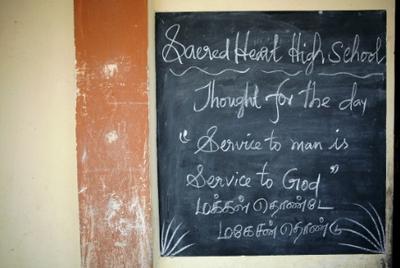 Sacred Heart High School
Thought for the day
"Service to man is
Service to God"
மக்கள் தொண்டே
மகேசன் தொண்டு